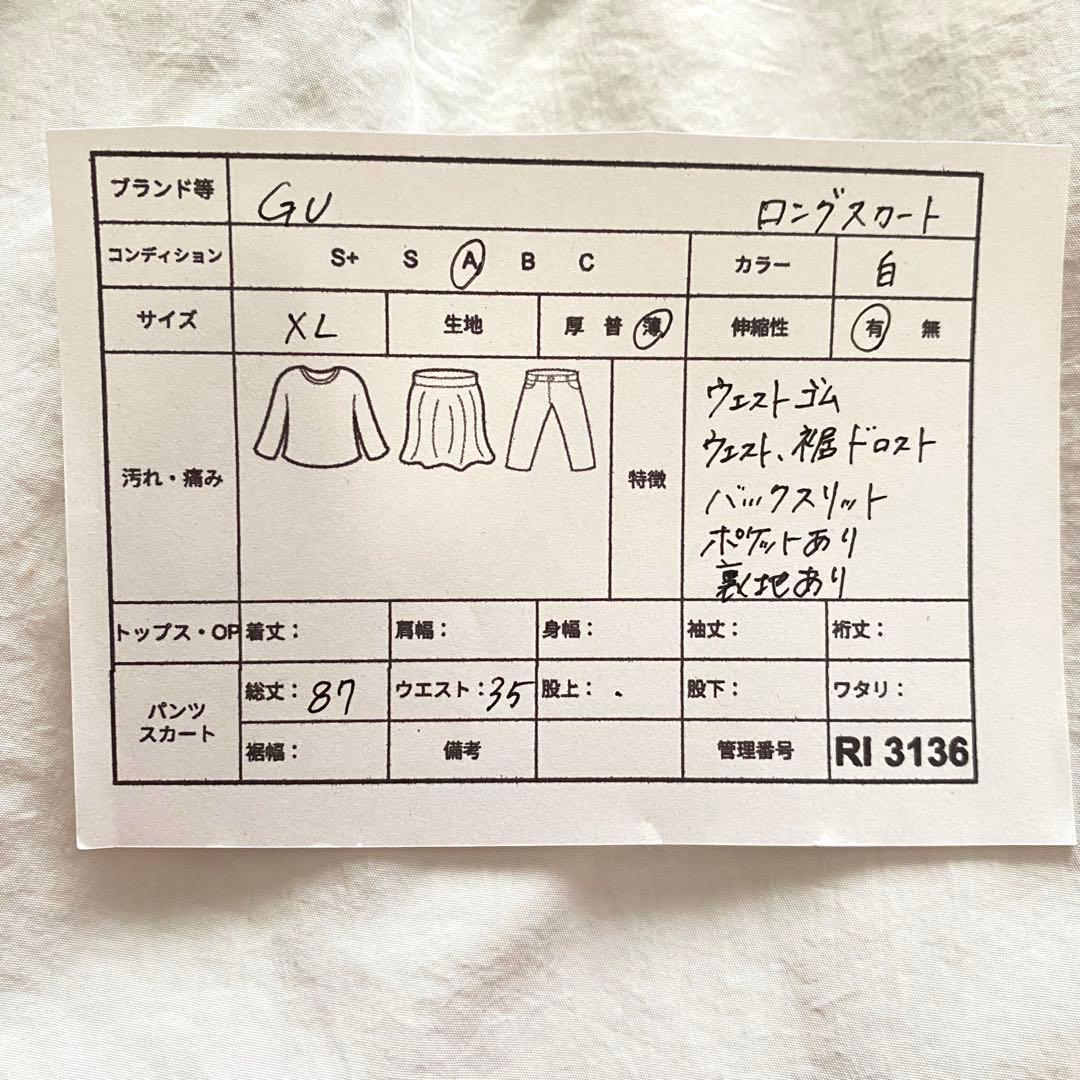 ブランド等 GU ロングスカート
コンディション S+ S A B C カラー 白
サイズ XL 生地 厚 普 薄 伸縮性 有 無
汚れ・痛み 特徴
ウエストゴム
ウエスト、裾ドロスト
バックスリット
ポケットあり
裏地あり
トップス・OP 着丈： 肩幅： 身幅： 袖丈： 裄丈：
パンツ
スカート
総丈：87 ウエスト：35 股上： 股下： ワタリ：
裾幅： 備考 管理番号 RI 3136